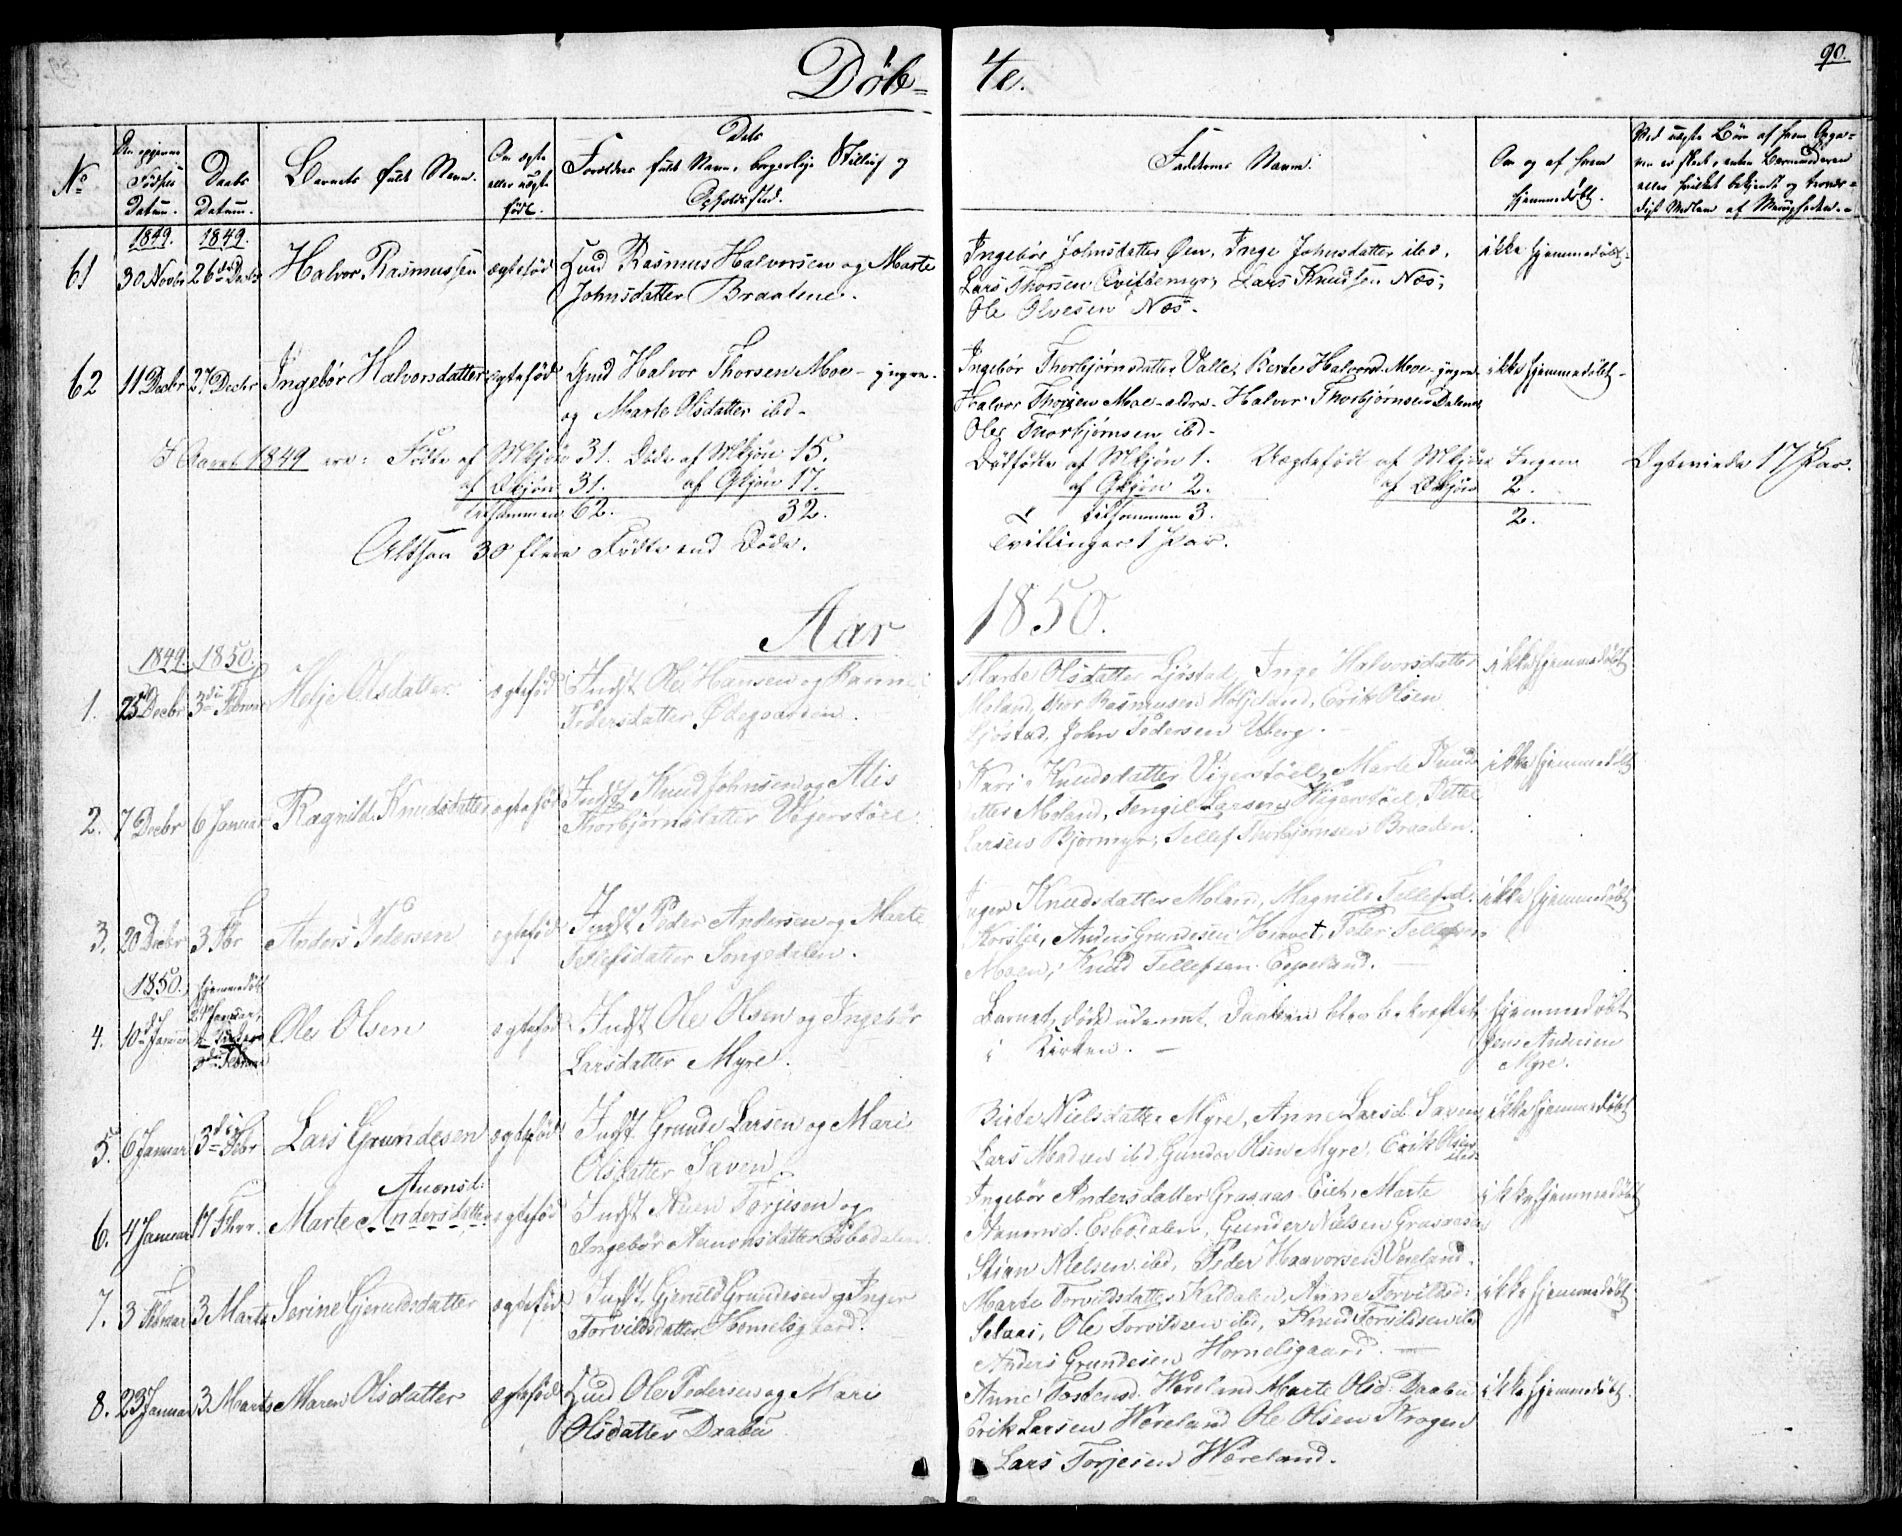 Døb-
te.
90.
No
Den egjenne Fødsels Datum.
Daabs Datum.
Barnets fulde Navn.
Om ægte eller uægte født.
Forældres fulde Navn, borgerlige Stilling og Opholdssted.
Faddernes Navne.
Om og af hvem hjemmedøbt.
1849. 1849.
61 30 Novbr 26de Decbr Halvor Rasmussen ægtefød
Rasmus Halvorsen og Marte
Johnsdatter Braatene.
Ingebør Johnsdatter Øen, Inge Johnsdatter ibd,
Lars Thorsen Qvifdemyr, Lars Knudsen Næs,
Ole Olvesen Næs.
ikke hjemmedøbt.
62 11 Decbr 27 Decbr Ingebør Halvorsdatter ægtefød
Gmd Halvor Thorsen Moe- yngre.
og Marte Olsdatter ibd-
Ingebør Thorbjørnsdatter Valle, Berte Halvorsd. Moe- yngre
Halvor Thorsen Moe- eldre- Halvor Thorbjørnsen Dalene,
Ole Thorbjørnsen ibd-
ikke hjemmedøbt-
I Aaret 1849 ere: Fødte af Mkjøn 31. Døde af Mkjøn 15.
af Qkjøn 31. af Qkjøn 17.
tilsammen 62. 32.
Altsaa 30 flere Fødte end Døde.
Dødfødte af Mkjøn 1. Uægtefødt af Mkjøn Ingen
af Qkjøn 2. af Qkjøn 2.
tilsammen 3. 2.
Tvillinger 1 Par.
Ægteviede 17 Par.
Aar 1850.
1849. 1850.
1. 25 Decbr 3die Februar Helje Olsdatter ægtefød
Indst Ole Hansen og Ranne
Pedersdatter Ødegaarden.
Marte Olsdatter Ljøstad, Inge Halvorsdatter
Moland, Thor Rasmussen Høljeland, Erik Olsen
Ljøstad, John Pedersen Uberg.
ikke hjemmedøbt
2. 7 Decbr 6 Januar Ragnild Knudsdatter ægtefød
Indst Knud Johnsen og Alis
Thorbjørnsdatter Vegerstøel
Kari Knudsdatter Vigerstøel, Marte Knuds
datter Moland, Tengil Larsen Vigerstøel, Dettel
Larsen Bjørmyr, Tellef Thorbjørnsen Braaden.
ikke hjemmedøbt
3. 20 Decbr 3 Fbr Anders Pedersen ægtefød
Indst Peder Andersen og Marte
Tellefsdatter Songedalen.
Inger Knudsdatter Moland, Magnild Tellefsd.
Anders Grundesen Peder Tellefsen
Moen, Knud Tellefsen Espeland.
ikke hjemmedøbt
1850. hjemmedøbt
4. 10de Januar Ole Olsen ægtefød
Indst Ole Olsen og Ingebør
Larsdatter Myre.
Barnet døde udømt. Daaben blev bekræftet
i Kirken.
hjemmedøbt
Jens Andersen
Myre.
5. 6 Januar 3die Febr Lars Grundesen ægtefød
Indst Grunde Larsen og Mari
Olsdatter Saven.
Birte Nielsdatter Myre, Anne Larsd. Saven,
Lars Madsen ibd, Gunder Olsen Myre, Erik Olsen
ibd.
ikke hjemmedøbt
Aanonsd:
6. 4 Januar 17 Fbr. Marte Andersdatter ægtefød
Indst Anen Torjesen og
Ingebør Aanonsdatter Esbødalen
Ingebør Andersdatter Grasaas Eiet, Marte
Aanonsd. Esbødalen, Gunder Nielsen Grasaasen,
Stian Nielsen ibd, Peder Haavorsen Væreland.
ikke hjemmedøbt
7. 3 Februar 3 Marts Serine Gjeruldsdatter ægtefød
Indst. Gjeruld Grundesen og Inger
Torvildsdatter Hornelsgaard.
Marte Torvildsdatter Kildalen, Anne Torvildsd:
Selaas, Ole Torvildsen ibd, Knud Torvildsen ibd
Anders Grundesen Hornelsgaard.
ikke hjemmedøbt
8. 23 Januar 3 Marts Maren Olsdatter ægtefød
Ole Pedersen og Mari
Olsdatter Daabu
Anne Tostensd. Wæreland Marte Olsd. Daabu
Erik Larsen Wæreland Ole Olsen Krogen
Lars Torjesen Wæreland.
ikke hjemmedøbt.